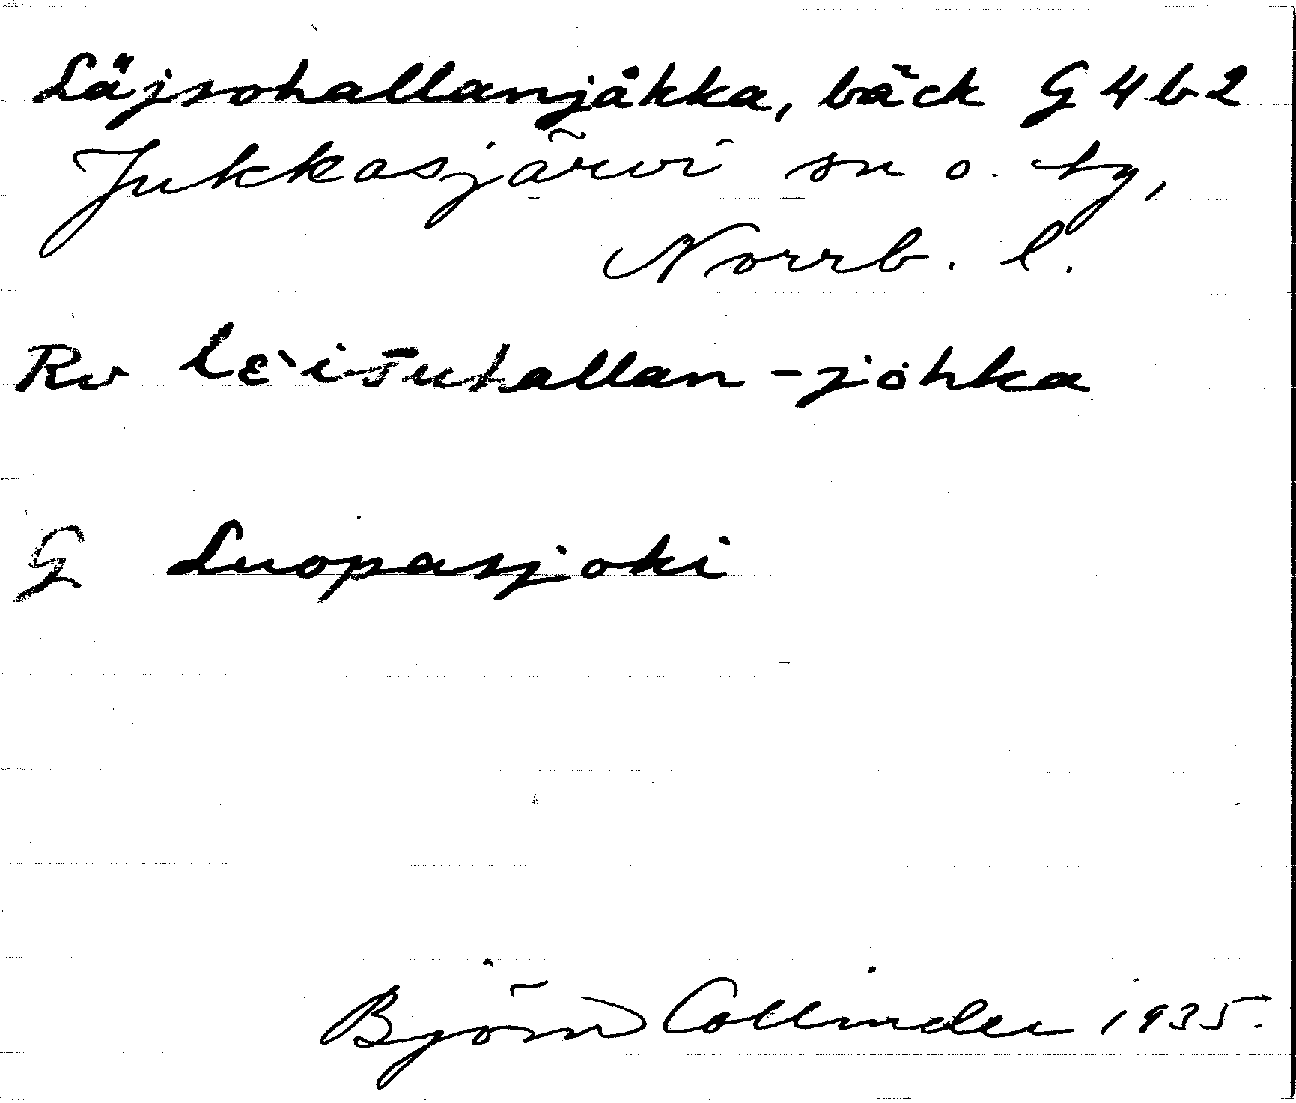 Läjsohallanjåkka, bäck G4b2
Jukkasjärvi sn o. tg,
Norrb. l.
Rv lɛ̀isuhallan-jȯhka
G Luopasjoki
Björn Collinder 1935.